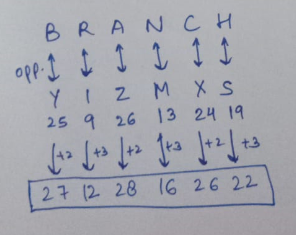 B R A N C H
opp.
Y I Z M X S
25 9 26 13 24 19
+2 +3 +2 +3 +2 +3
27 12 28 16 26 22